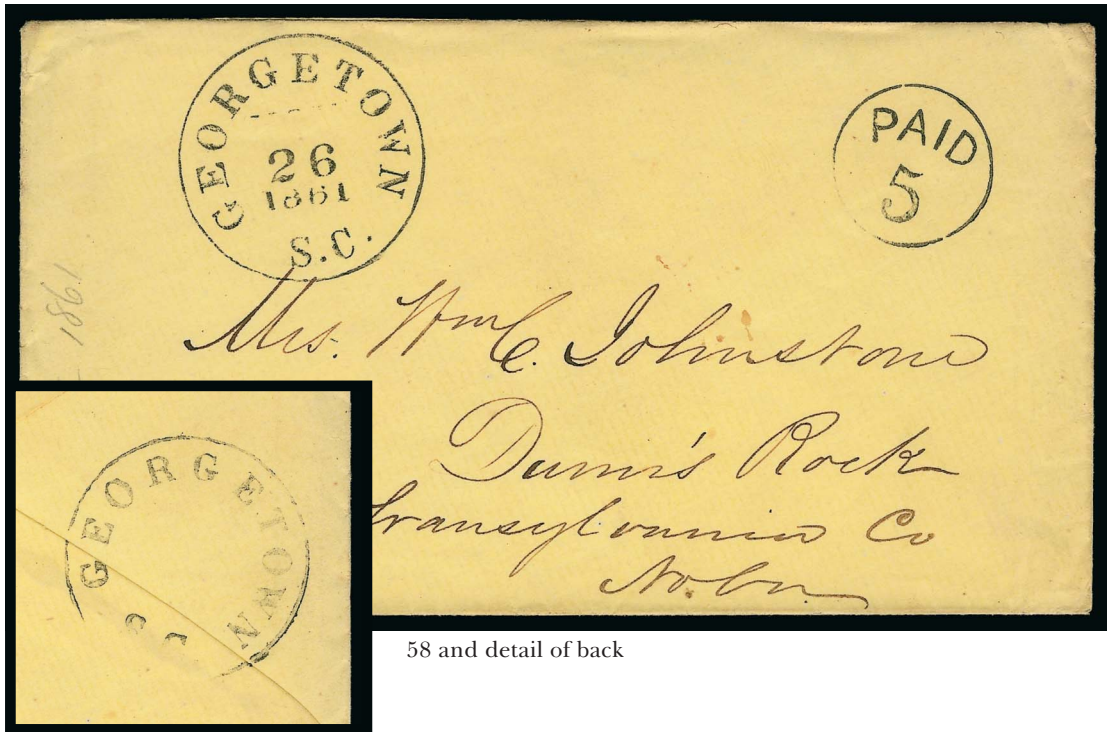 GEORGETOWN
26
1861
S.C.
PAID
5
1861
Mrs. Wm C. Johnstone
Dunn's Rock
Transylvania Co
No. Ca
GEORGETOWN
S C
58 and detail of back